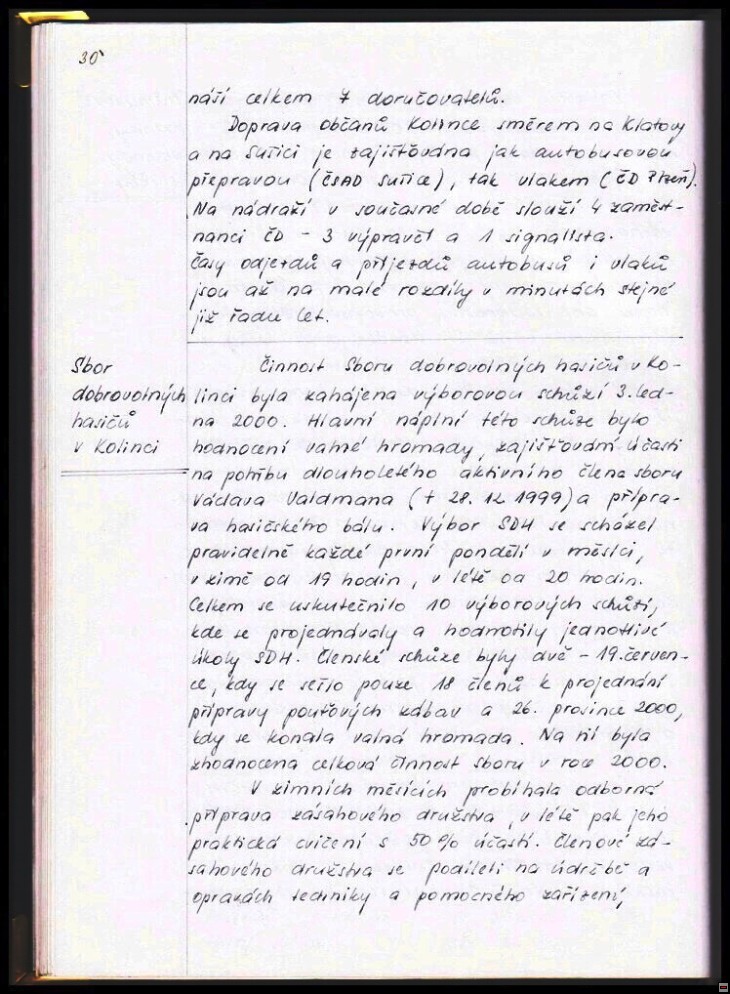 30
náší celkem 7 doručovatelů.
Doprava občanů Kolince směrem na Klatovy
a na Sušici je zajišťována jak autobusovou
přepravou (ČSAD Sušice), tak vlakem (ČD Plzeň).
Na nádraží v současné době slouží 4 zaměst-
nanci ČD - 3 výpravčí a 1 signalista.
Časy odjezdů a příjezdů autobusů i vlaků
jsou až na malé rozdíly v minutách stejné
již řadu let.
Sbor
dobrovolných
hasičů
v Kolinci
Činnost Sboru dobrovolných hasičů v Ko-
linci byla zahájena výborovou schůzí 3. led-
na 2000. Hlavní náplní této schůze bylo
hodnocení valné hromady, zajišťování účasti
na pohřbu dlouholetého aktivního člena sboru
Václava Valdmana (+ 28. 12. 1999) a přípra-
va hasičského bálu. Výbor SDH se scházel
pravidelně každé první pondělí v měsíci,
v zimě od 19 hodin, v létě od 20 hodin.
Celkem se uskutečnilo 10 výborových schůzí,
kde se projednávaly a hodnotily jednotlivé
úkoly SDH. Členské schůze byly dvě - 19. červen-
ce, kdy se sešlo pouze 18 členů k projednání
přípravy pouťových zábav a 26. prosince 2000,
kdy se konala valná hromada. Na ní byla
zhodnocena celková činnost sboru v roce 2000.
V zimních měsících probíhala odborná
příprava zásahového družstva, v létě pak jeho
praktická cvičení s 50% účastí. Členové zá-
sahového družstva se podíleli na údržbě a
opravách techniky a pomocného zařízení,